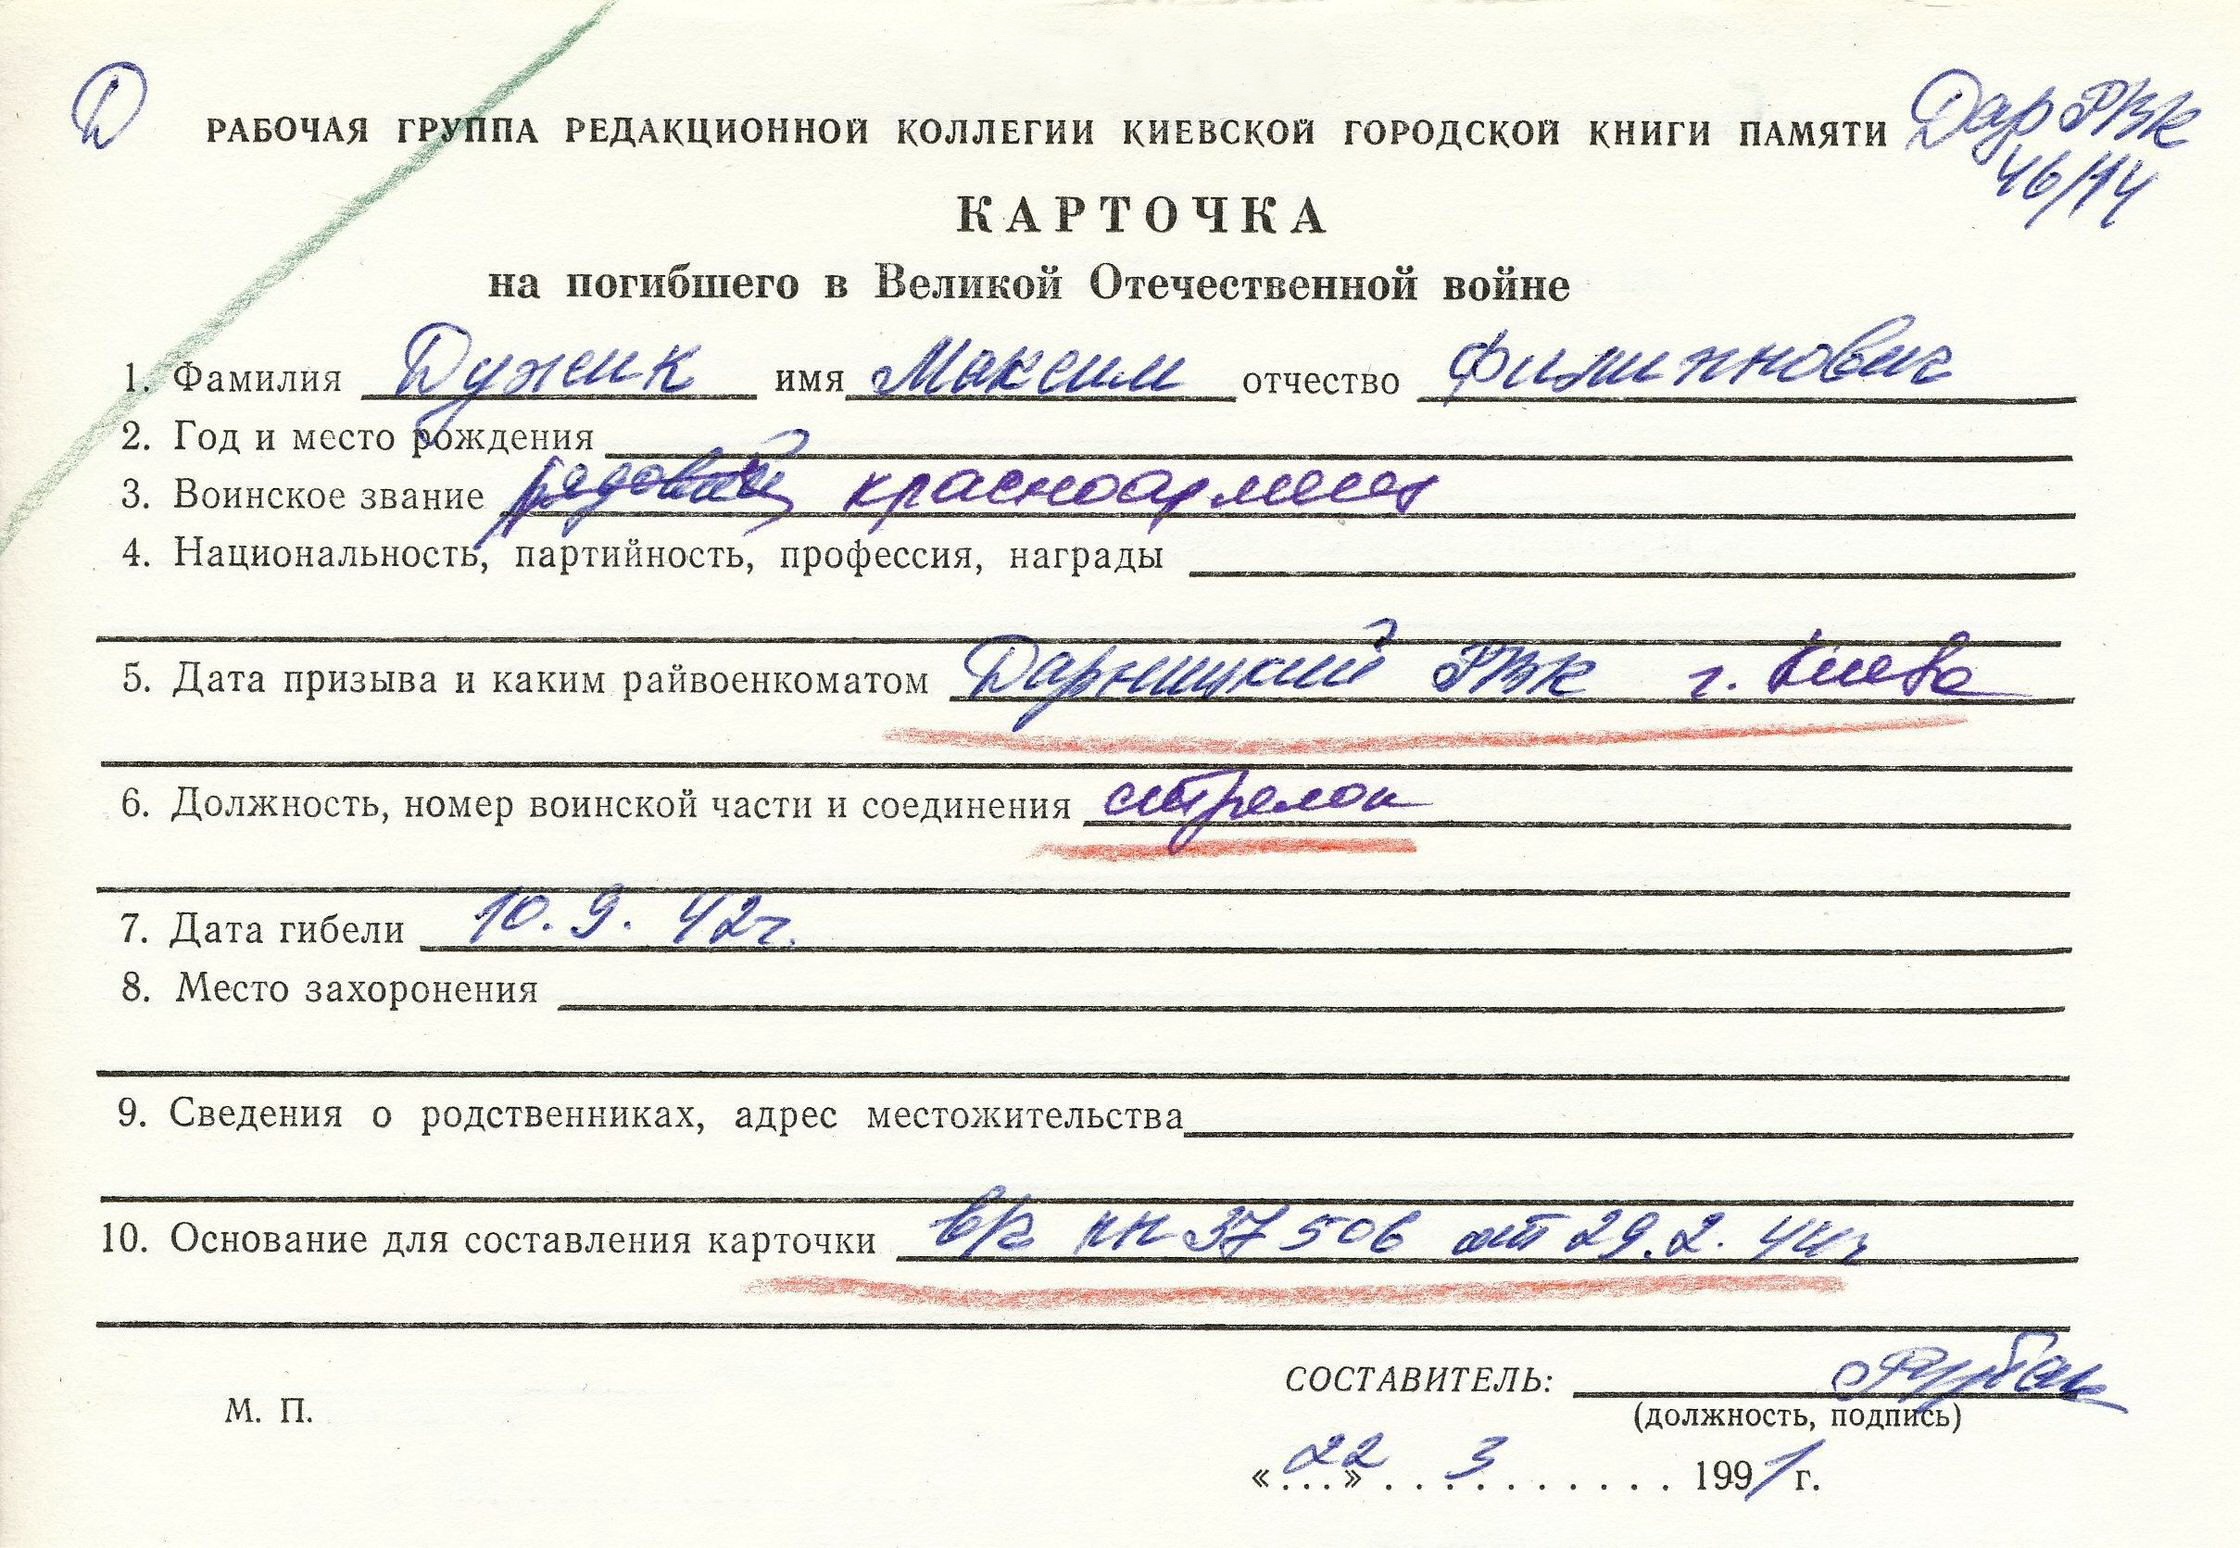 Д
РАБОЧАЯ ГРУППА РЕДАКЦИОННОЙ КОЛЛЕГИИ КИЕВСКОЙ ГОРОДСКОЙ КНИГИ ПАМЯТИ Дар РВК
46/114
КАРТОЧКА
на погибшего в Великой Отечественной войне
1. Фамилия Дужик имя Максим отчество
2. Год и место рождения
3. Воинское звание рядовой красноармеец
4. Национальность, партийность, профессия, награды
5. Дата призыва и каким райвоенкоматом Дарницкий РВК г. Киева
6. Должность, номер воинской части и соединения стрелок
7. Дата гибели 10. 9. 42г.
8. Место захоронения
9. Сведения о родственниках, адрес местожительства
10. Основание для составления карточки 37506 от 29.2.44г
СОСТАВИТЕЛЬ:
М. П.
(должность, подпись)
«22» 3 1991 г.